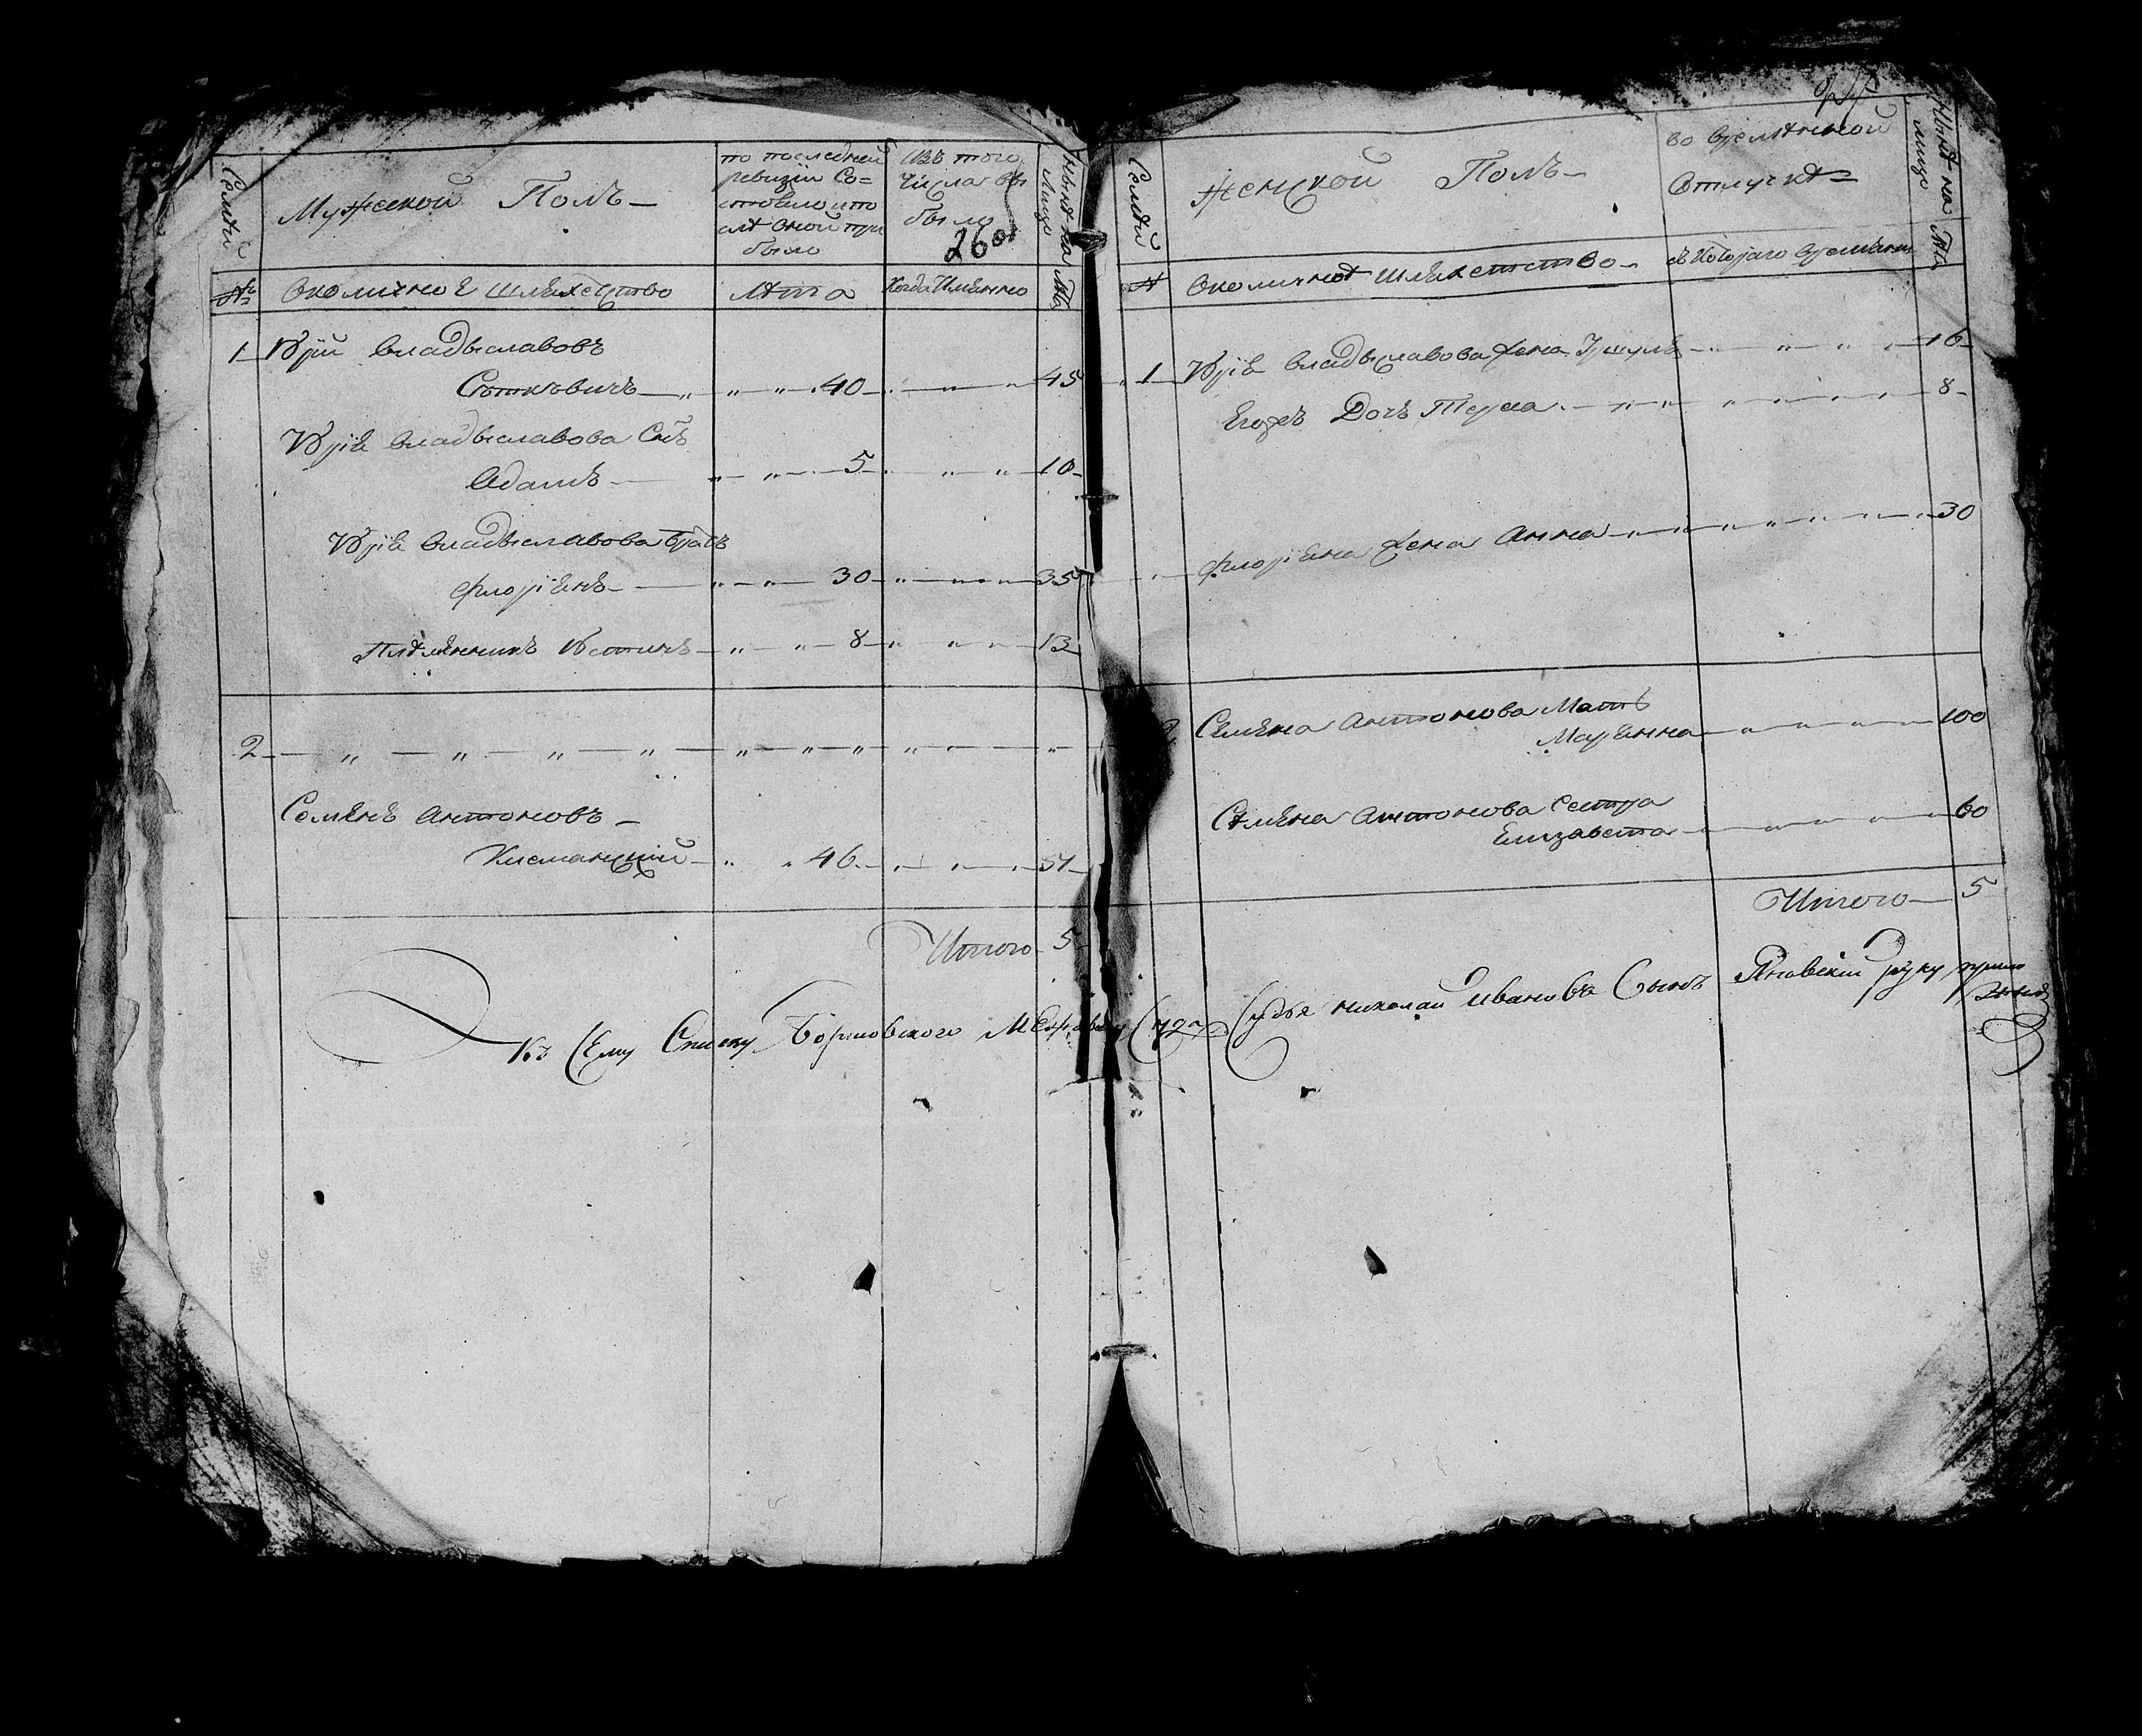 Семьи
Мужеской Полъ
по последней
ревизіи Со=
стояло и по
слѣ оной при
было
Изъ того
Числа вы
было
260
Нынѣ на
Лицо
№
Околичное шляхецтво
Лѣта
Когда Имянно
Лѣта
1 Юрій Владыславовъ
40 45
Юрія Владыславова Сынъ
Адамъ 5 10
Юрія Владыславова Братъ
Флоріянъ 30 35
Племянникъ Юстинъ 8 13
2
Семянъ Антоновъ
46 51
Итого 5
Семьи
Женской Полъ
во времянной
Отлучкѣ
Нынѣ на
лицо
№
Околичное шляхетство
съ Котораго времяни
Лѣта
1 Юрія Владыславова жена 46
Егожъ Дочъ 8
Флоріяна жена Анна 30
2 Семяна Антонова Мать
Марянна 100
Семяна Антонова Сестра
Елизавета 60
Итого 5
Къ Сему Списку Суда Судья Николай Ивановъ Сынъ Яновскій руку прило
жилъ